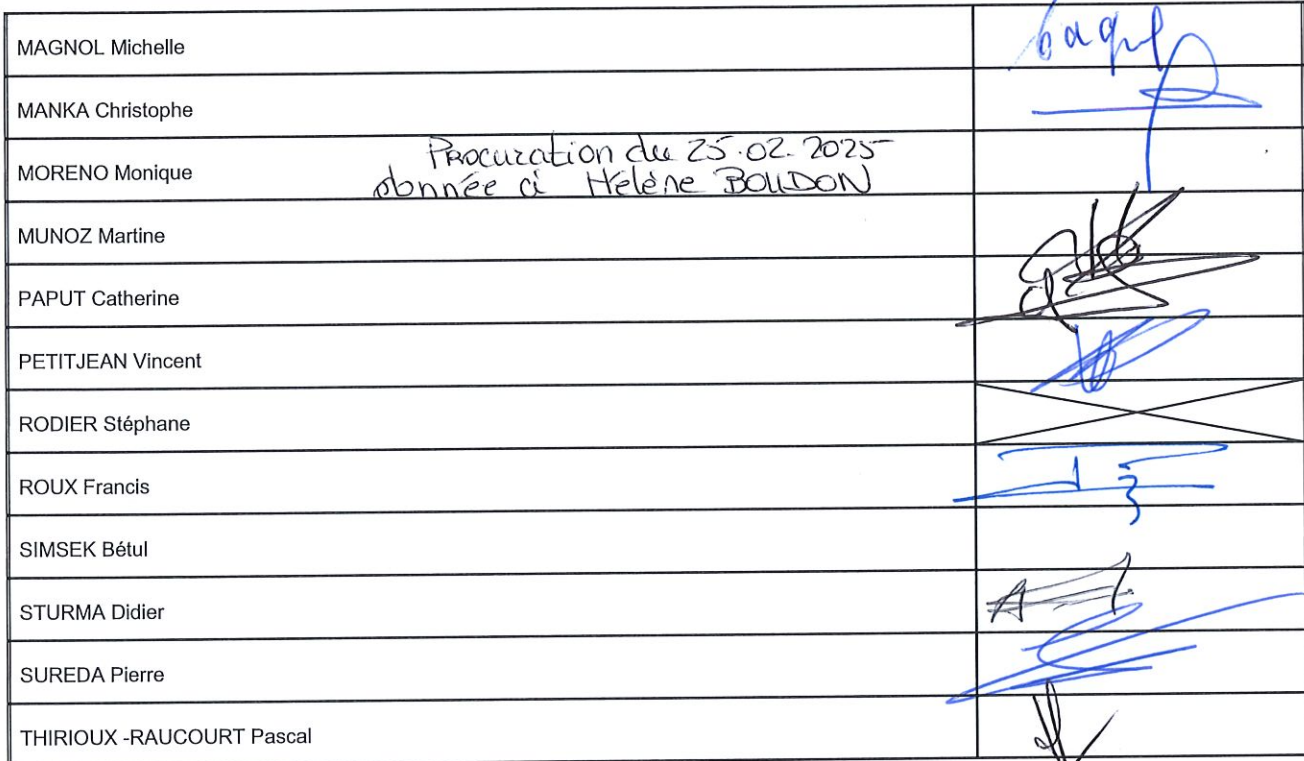 MAGNOL Michelle
MANKA Christophe
Procuration du 25.02.2025
MORENO Monique
donnée à Hélène BOUDON
MUNOZ Martine
PAPUT Catherine
PETITJEAN Vincent
RODIER Stéphane
ROUX Francis
SIMSEK Bétul
STURMA Didier
SUREDA Pierre
THIRIOUX -RAUCOURT Pascal